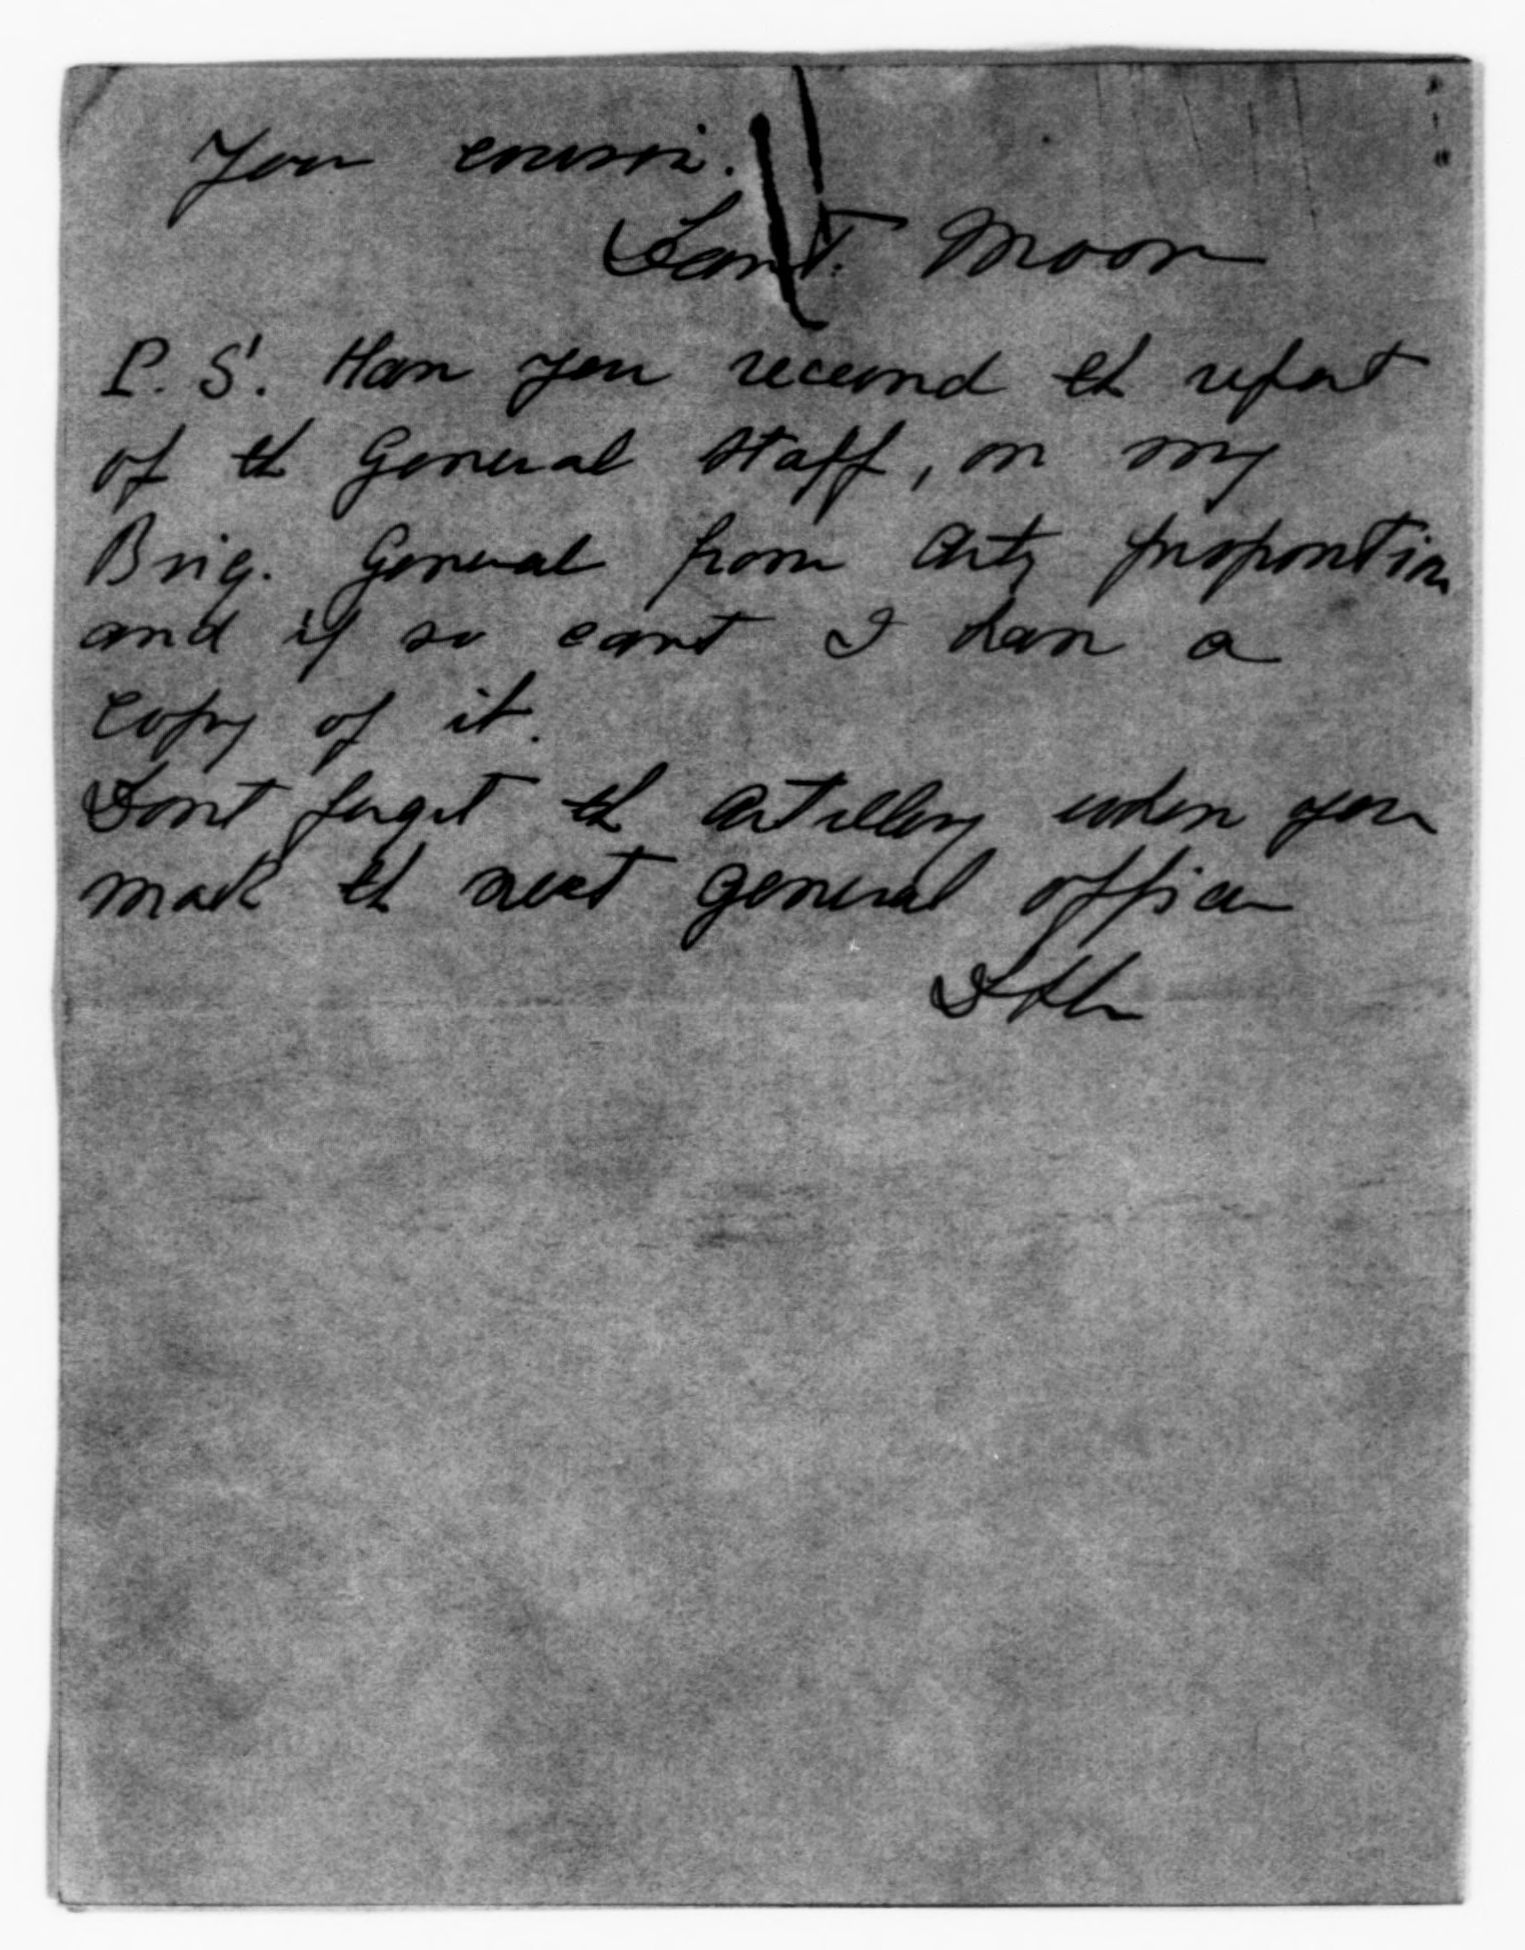 Your cousin.
Dan T. Moore
P.S. Have you received the report
of the General Staff, on my
Brig. General from Arty proposition
and if so cant I have a
copy of it.
Dont forget the Artillery when you
make the next general officer